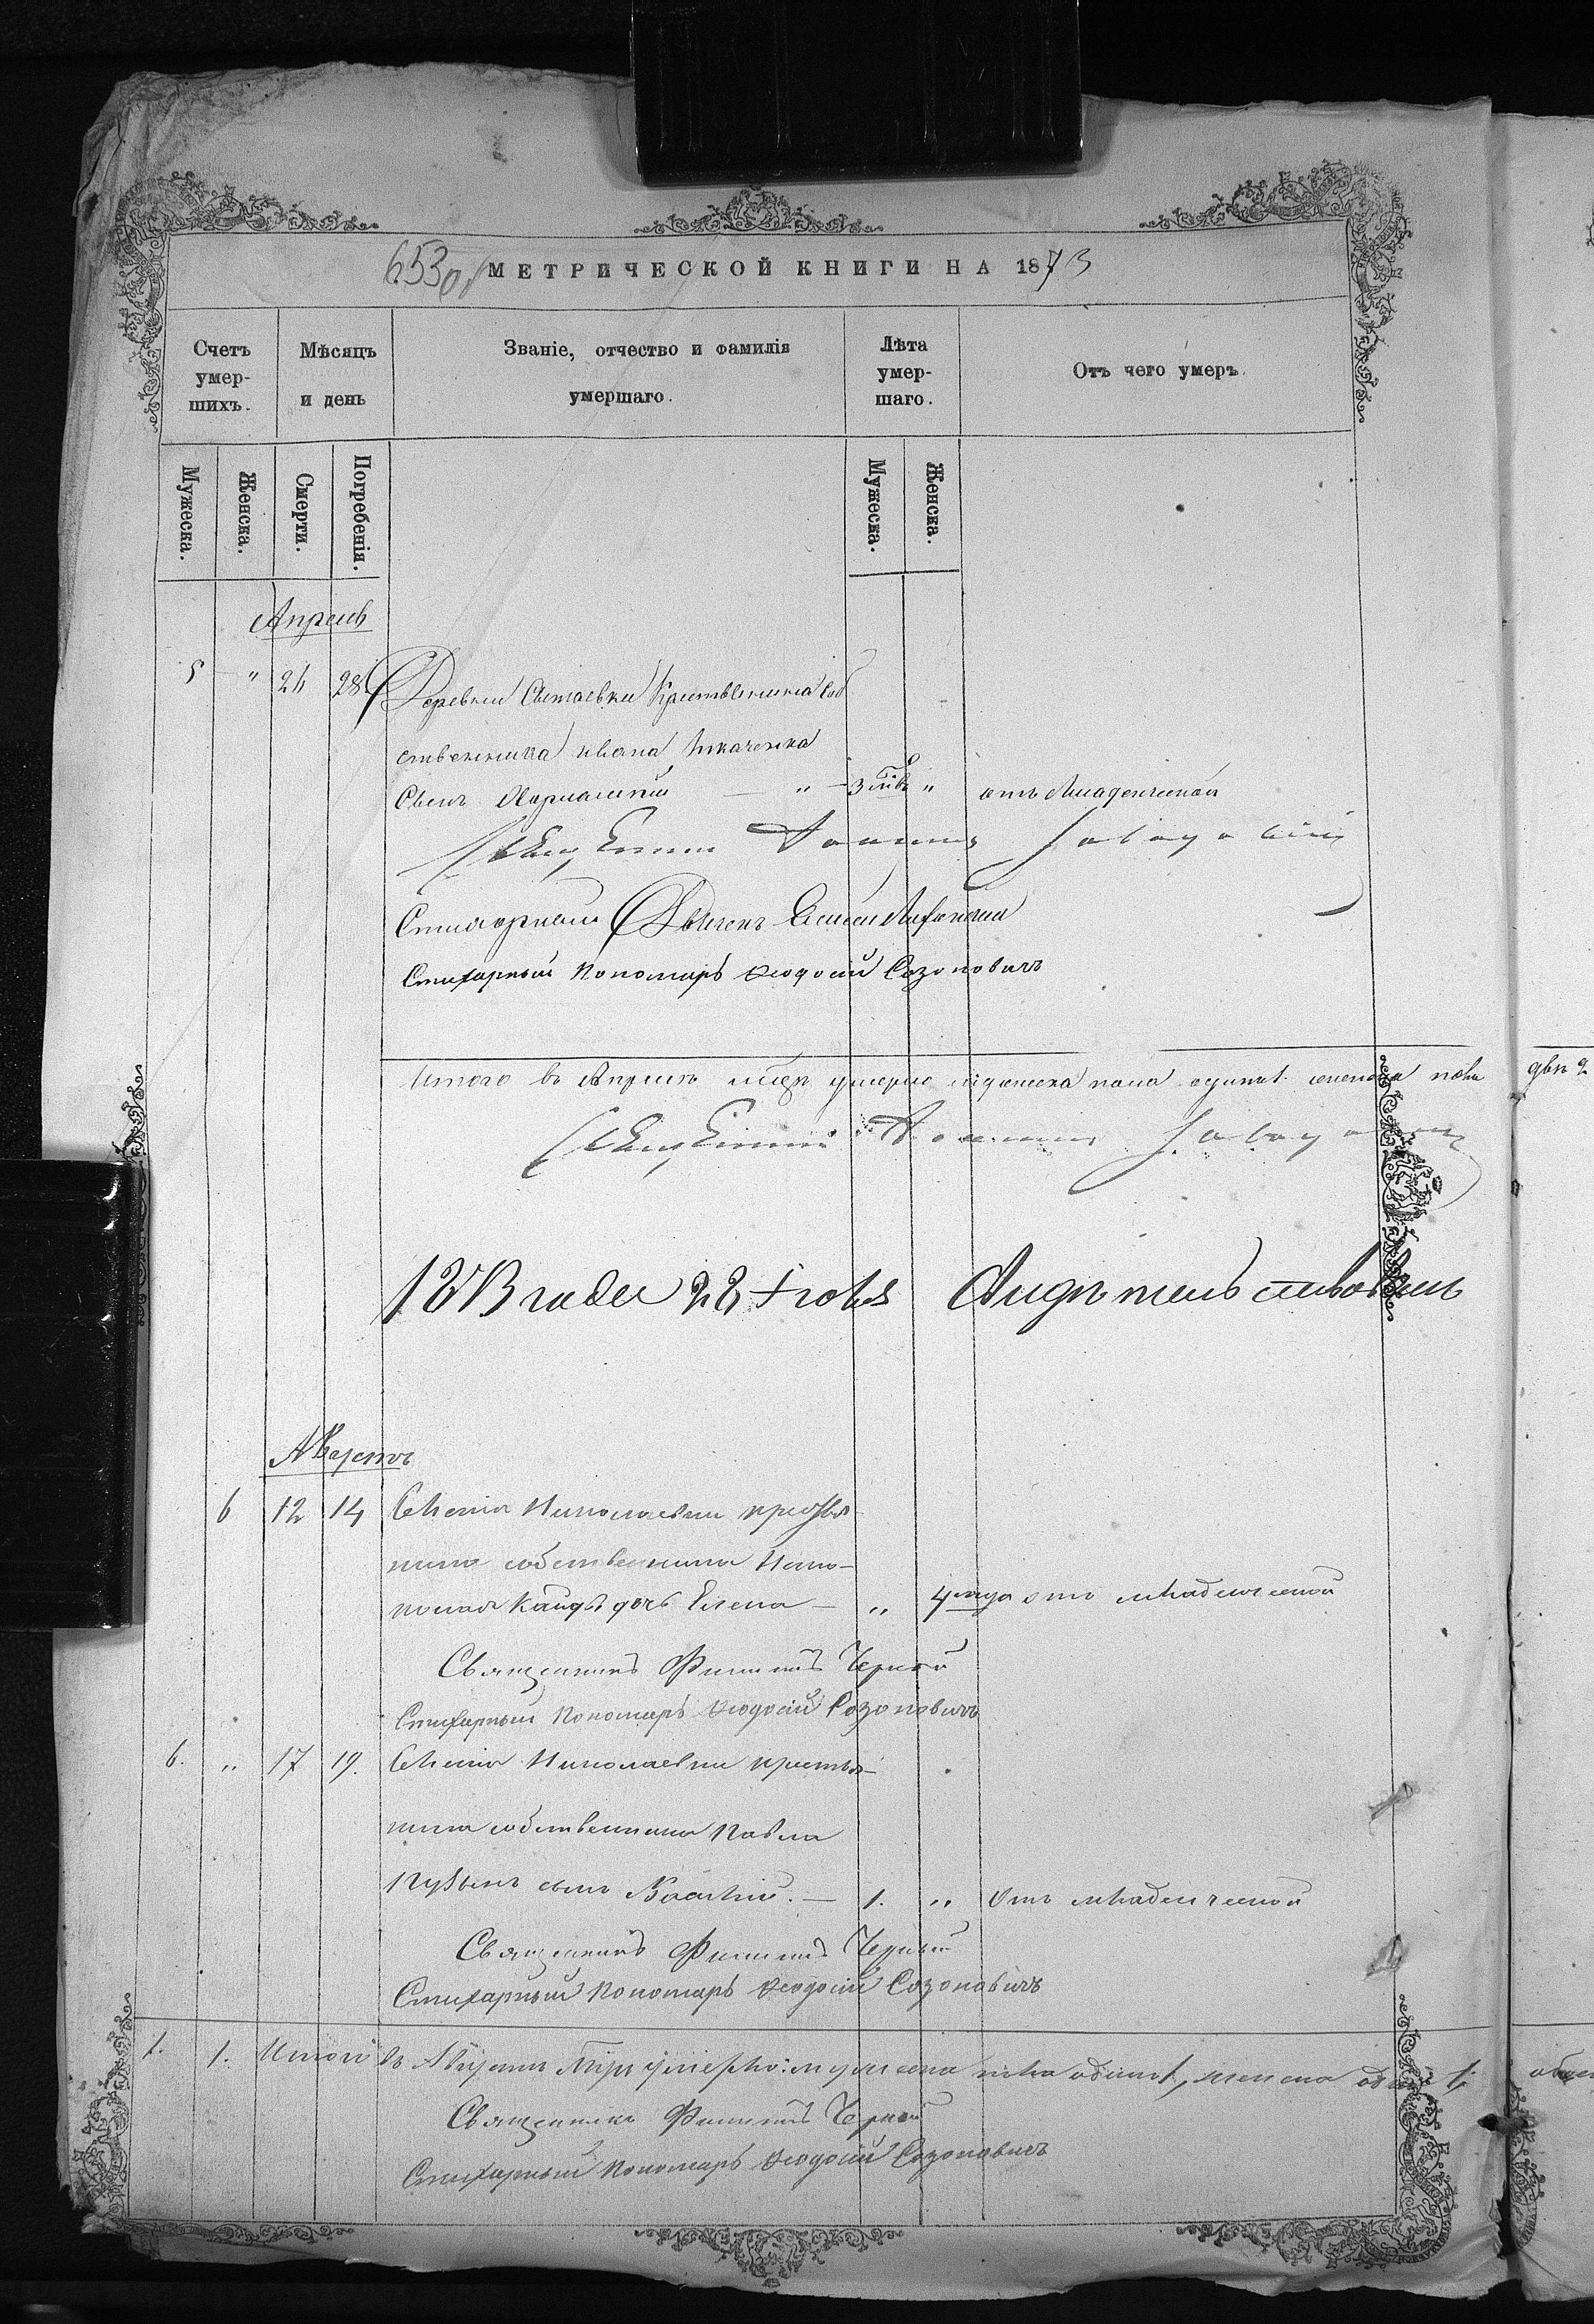 653об МЕТРИЧЕСКОЙ КНИГИ НА 1873
Счетъ умер-шихъ. Мѣсяцъ и день Званіе, отчество и фамилія умершаго. Лѣта умер-шаго. Отъ чего умеръ.
Мужеска. Женска. Смерти. Погребенія. Мужеска. Женска.
Апрель
5 " 26 28 Деревни Крестьянина соб
ственника Ивана Ткаченка
Сынъ " 3 " отъ младенческой
Священникъ Іоаннъ
Стихарный
Стихарный Пономарь Ѳеодосій Созоновичъ
Итого въ Апрелѣ умерло мужеска пола одинъ 1. женска пола двѣ 2
Священникъ Іоаннъ
Августъ
6 12 14 Села Николаевки крестья
нина собственника
дочь Елена — " 4 года отъ младенческой
Священникъ Филиппъ Черный
Стихарный Пономарь Ѳеодосій Созоновичъ
6. " 17 19. Села Николаевки крестья-
нина собственника Павла
сынъ — 1. " Отъ младенческой
Священникъ Филиппъ Черный
Стихарный Пономарь Ѳеодосій Созоновичъ
1. 1. Итого въ Августѣ умерло: мужеска пола одинъ 1, женска 1. обоего
Священникъ Филиппъ Черный
Стихарный Пономарь Ѳеодосій Созоновичъ